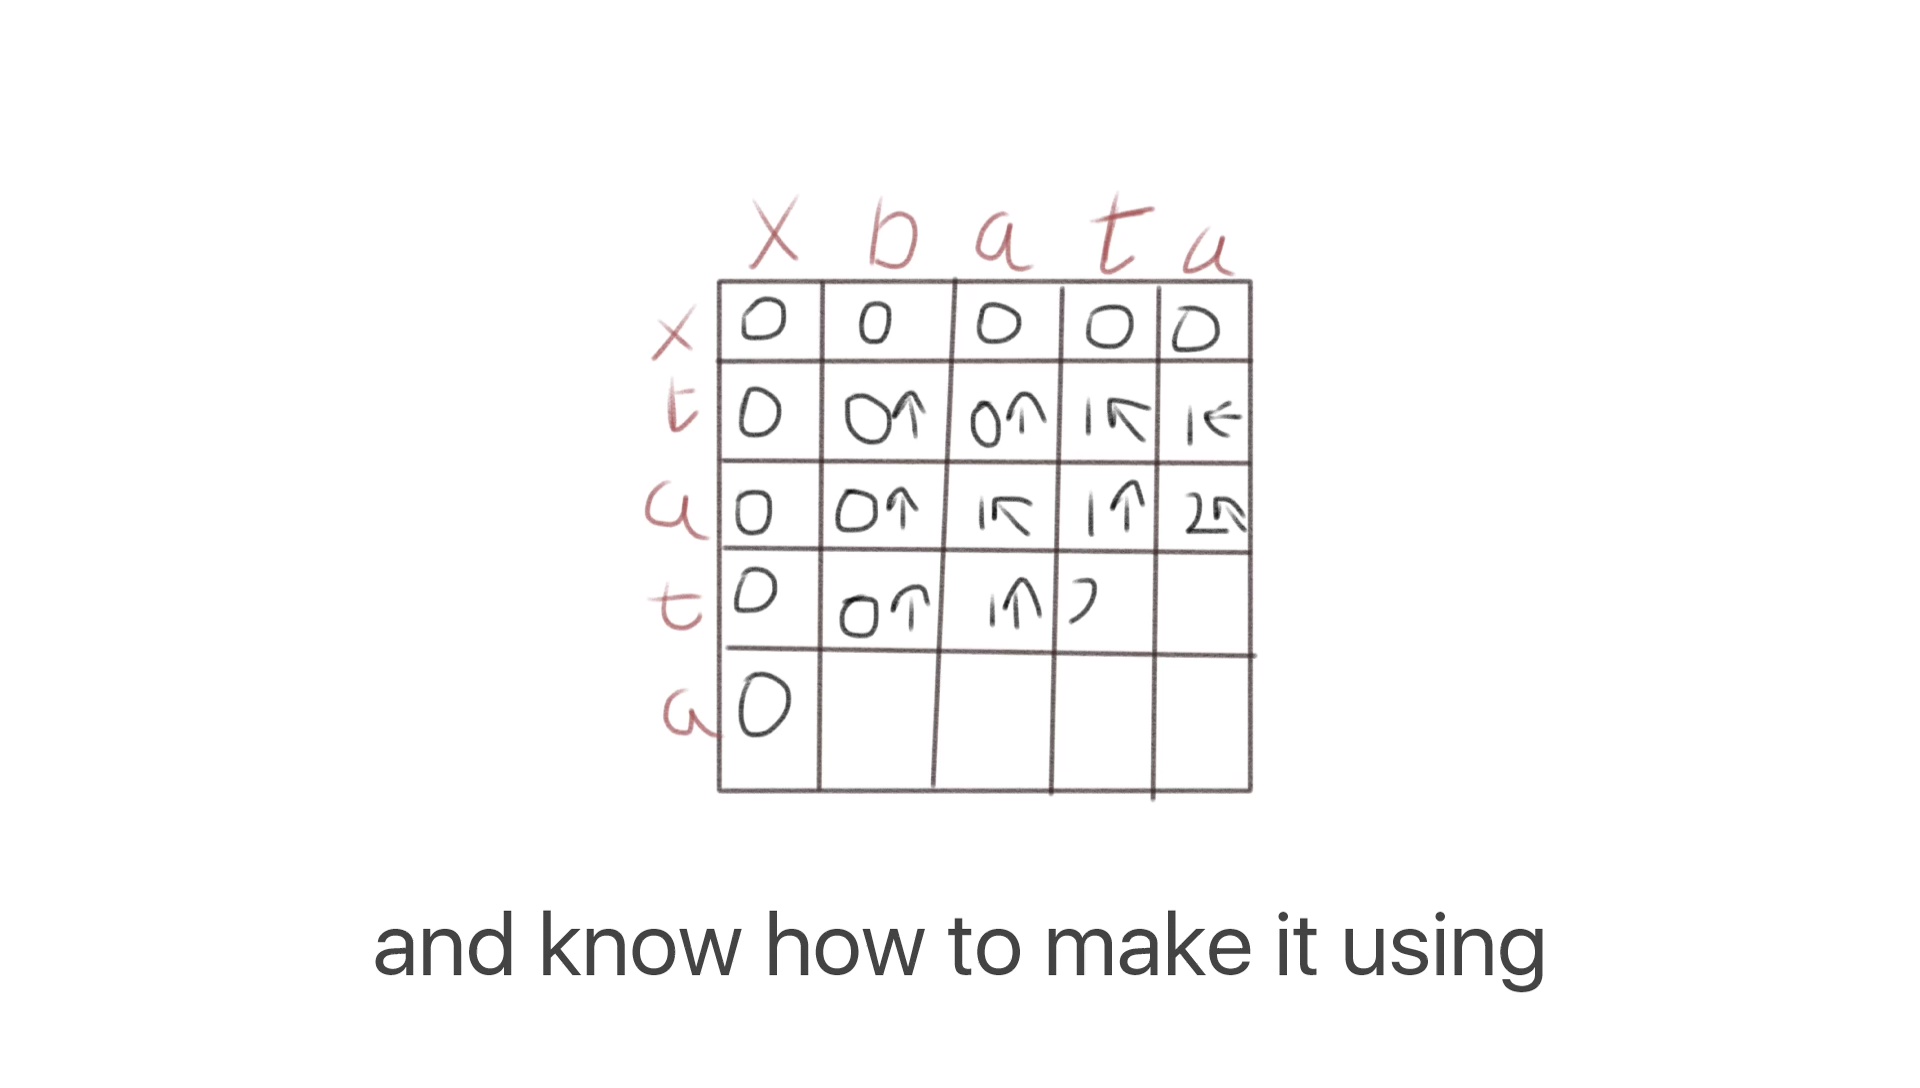 x b a t a
x 0 0 0 0 0
t 0 0↑ 0↑ 1↖ 1←
a 0 0↑ 1↖ 1↑ 2↖
t 0 0↑ 1↑
a 0
and know how to make it using